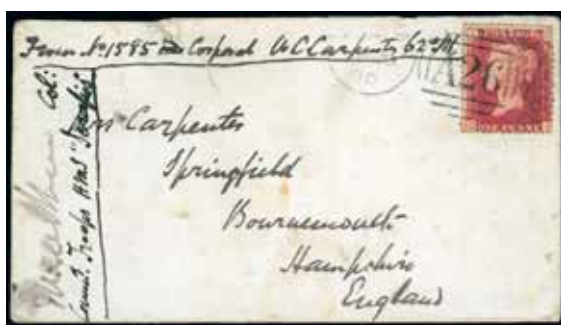 From No 1585 Corporal W C Carpenter 62nd
Mrs Carpenter
Springfield
Bournemouth
Hampshire
England
Col:
Comdg Troops HMS "Serapis"
A26
ONE PENNY